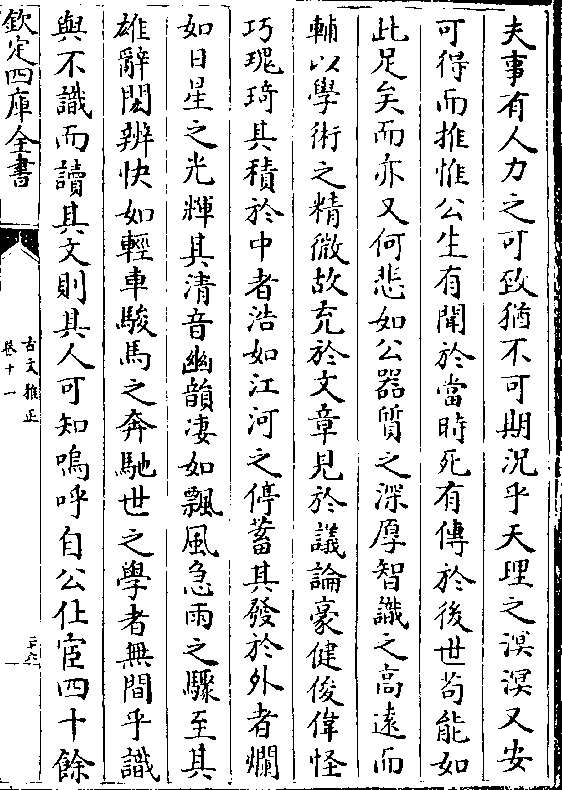 夫事有人力之可致猶不可期況乎天理之溟溟又安
可得而推惟公生有聞於當時死有傳於後世茍能如
此足矣而亦又何悲如公器質之深厚智識之高遠而
輔以學術之精微故充於文章見於議論豪健俊偉怪
巧瑰琦其積於中者浩如江河之停蓄其發於外者爛
如日星之光輝其清音幽韻凄如飄風急雨之驟至其
雄辭閎辨快如輕車駿馬之奔馳世之學者無間乎識
與不識而讀其文則其人可知嗚呼自公仕宦四十餘
欽定四庫全書
古文雅正
卷十一